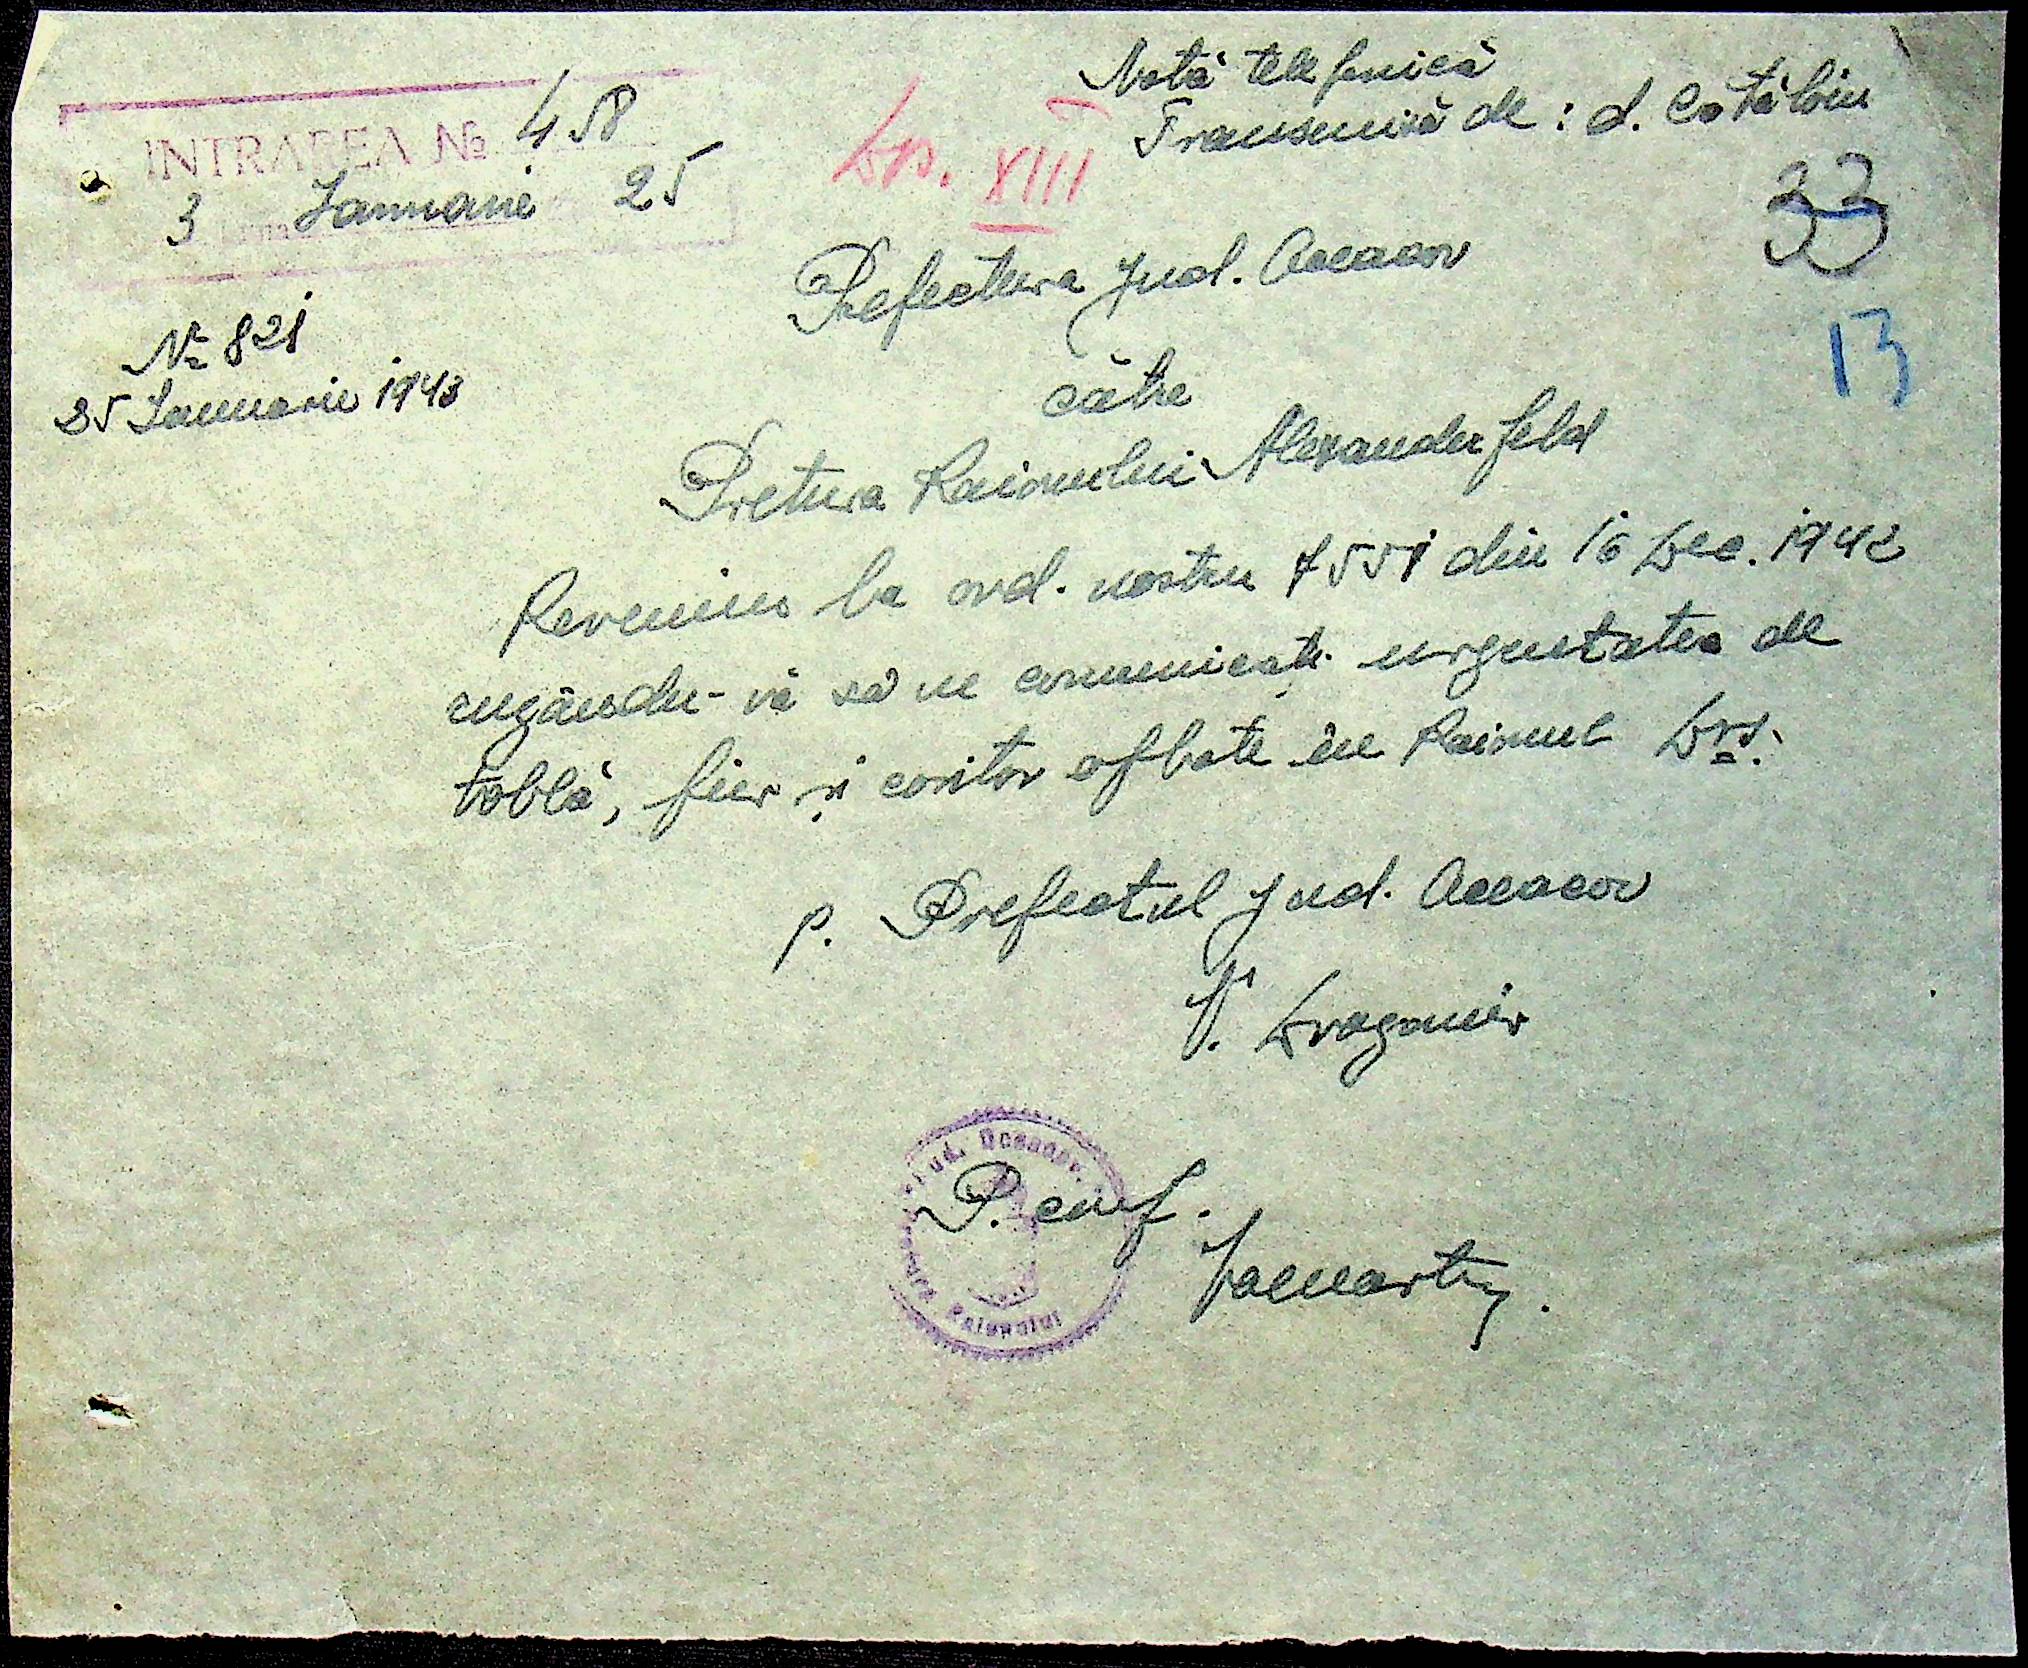 Notă telefonică
Transmisă de : d. Cotăloiu
INTRAREA № 458
3 Ianuarie 25
Dos. XIII
33
13
Prefectura Jud. Oceacov
№ 821
25 Ianuarie 1943
către
Pretura Raionului Alexanderfeld
Revenim la ord. nostru 7551 din 16 Dec. 1942
rugându-vă să ne comunicați urgent cantitatea de
tablă, fier și cositor aflate în Raionul Dvs.
p. Prefectul Jud. Oceacov
V. Dragomir
P. conf.
Jud. Oceacov
Pretura Raionului